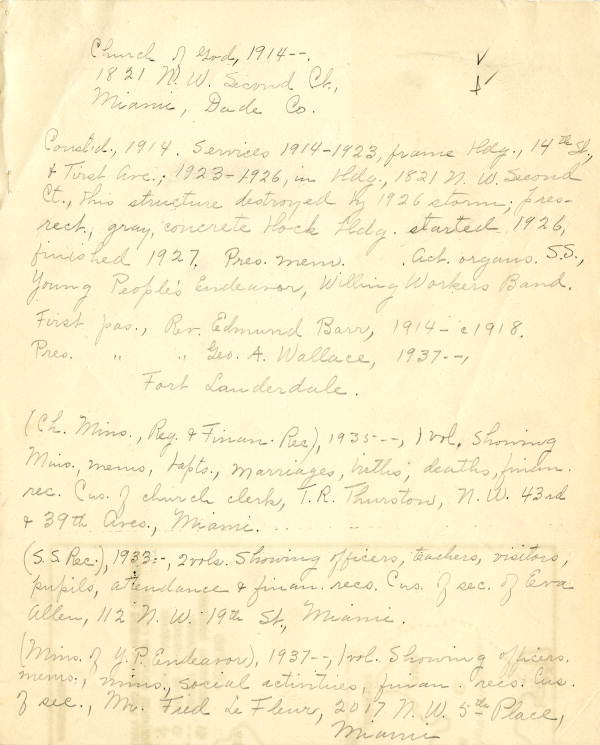 Church of God, 1914--.
1821 N. W. Second Ct.,
Miami, Dade Co.
Constd., 1914. Services 1914-1923, frame bldg., 14th St.,
& First Ave.; 1923-1926, in bldg., 1821 N. W. Second
Ct., this structure destroyed by 1926 storm; pres-
rect., gray, concrete block bldg. started 1926,
finished 1927. Pres. mem. . Act. organs. S.S.,
Young People's Endeavor, Willing Workers Band.
First pas., Rev. Edmund Barr, 1914- c1918.
Pres. " ", Geo. A. Wallace, 1937--,
Fort Lauderdale.
(Ch. Mins., Reg. & Finan. Rec), 1935---, 1 vol. Showing
Mins., mems, bapts., marriages, births, deaths, finan.
rec. Cus. of church clerk, T. R. Thurstow, N. W. 43rd
& 39th Aves., Miami.
(S. S. Rec.), 1933-, 2 vols. Showing officers, teachers, visitors,
pupils, attendance & finan. recs. Cus. of sec. of Eva
Allen, 112 N. W. 19th St., Miami.
(Mins. of Y. P. Endeavor), 1937--, 1 vol. Showing officers.
mems., mins., social activities, finan. recs. Cus.
of sec., Mr. Fred Le Fleur, 2017 N. W. 5th Place,
Miami